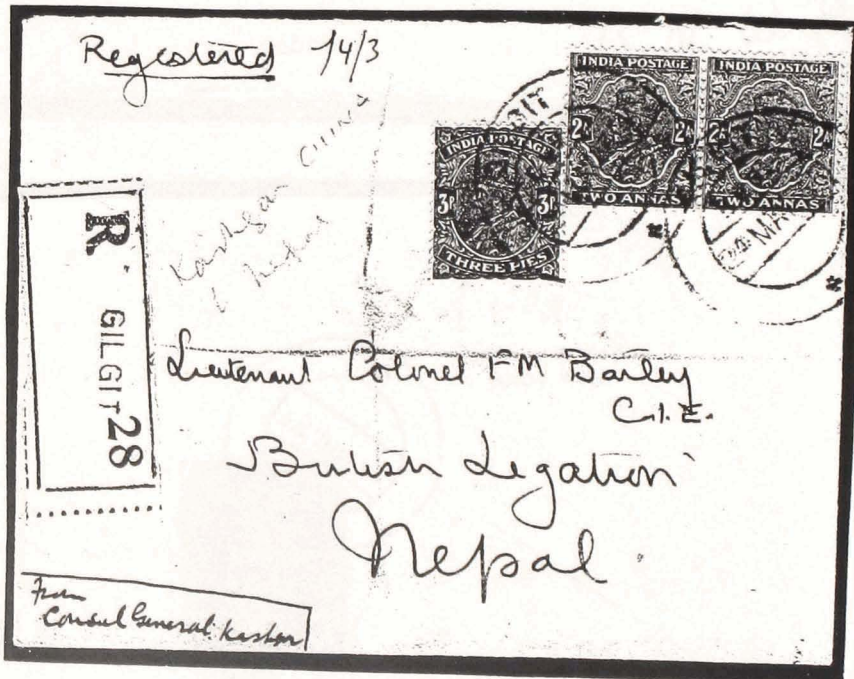 Registered /4/3
INDIA POSTAGE
2A 2A
TWO ANNAS
INDIA POSTAGE
2A 2A
TWO ANNAS
INDIA POSTAGE
3P 3P
THREE PIES
24 MAR
Kashgar China
Nepal
R
GILGIT 28
Lieutenant Colonel FM Bailey
C.I.E.
British Legation
Nepal.
From
Consul General. Kashgar